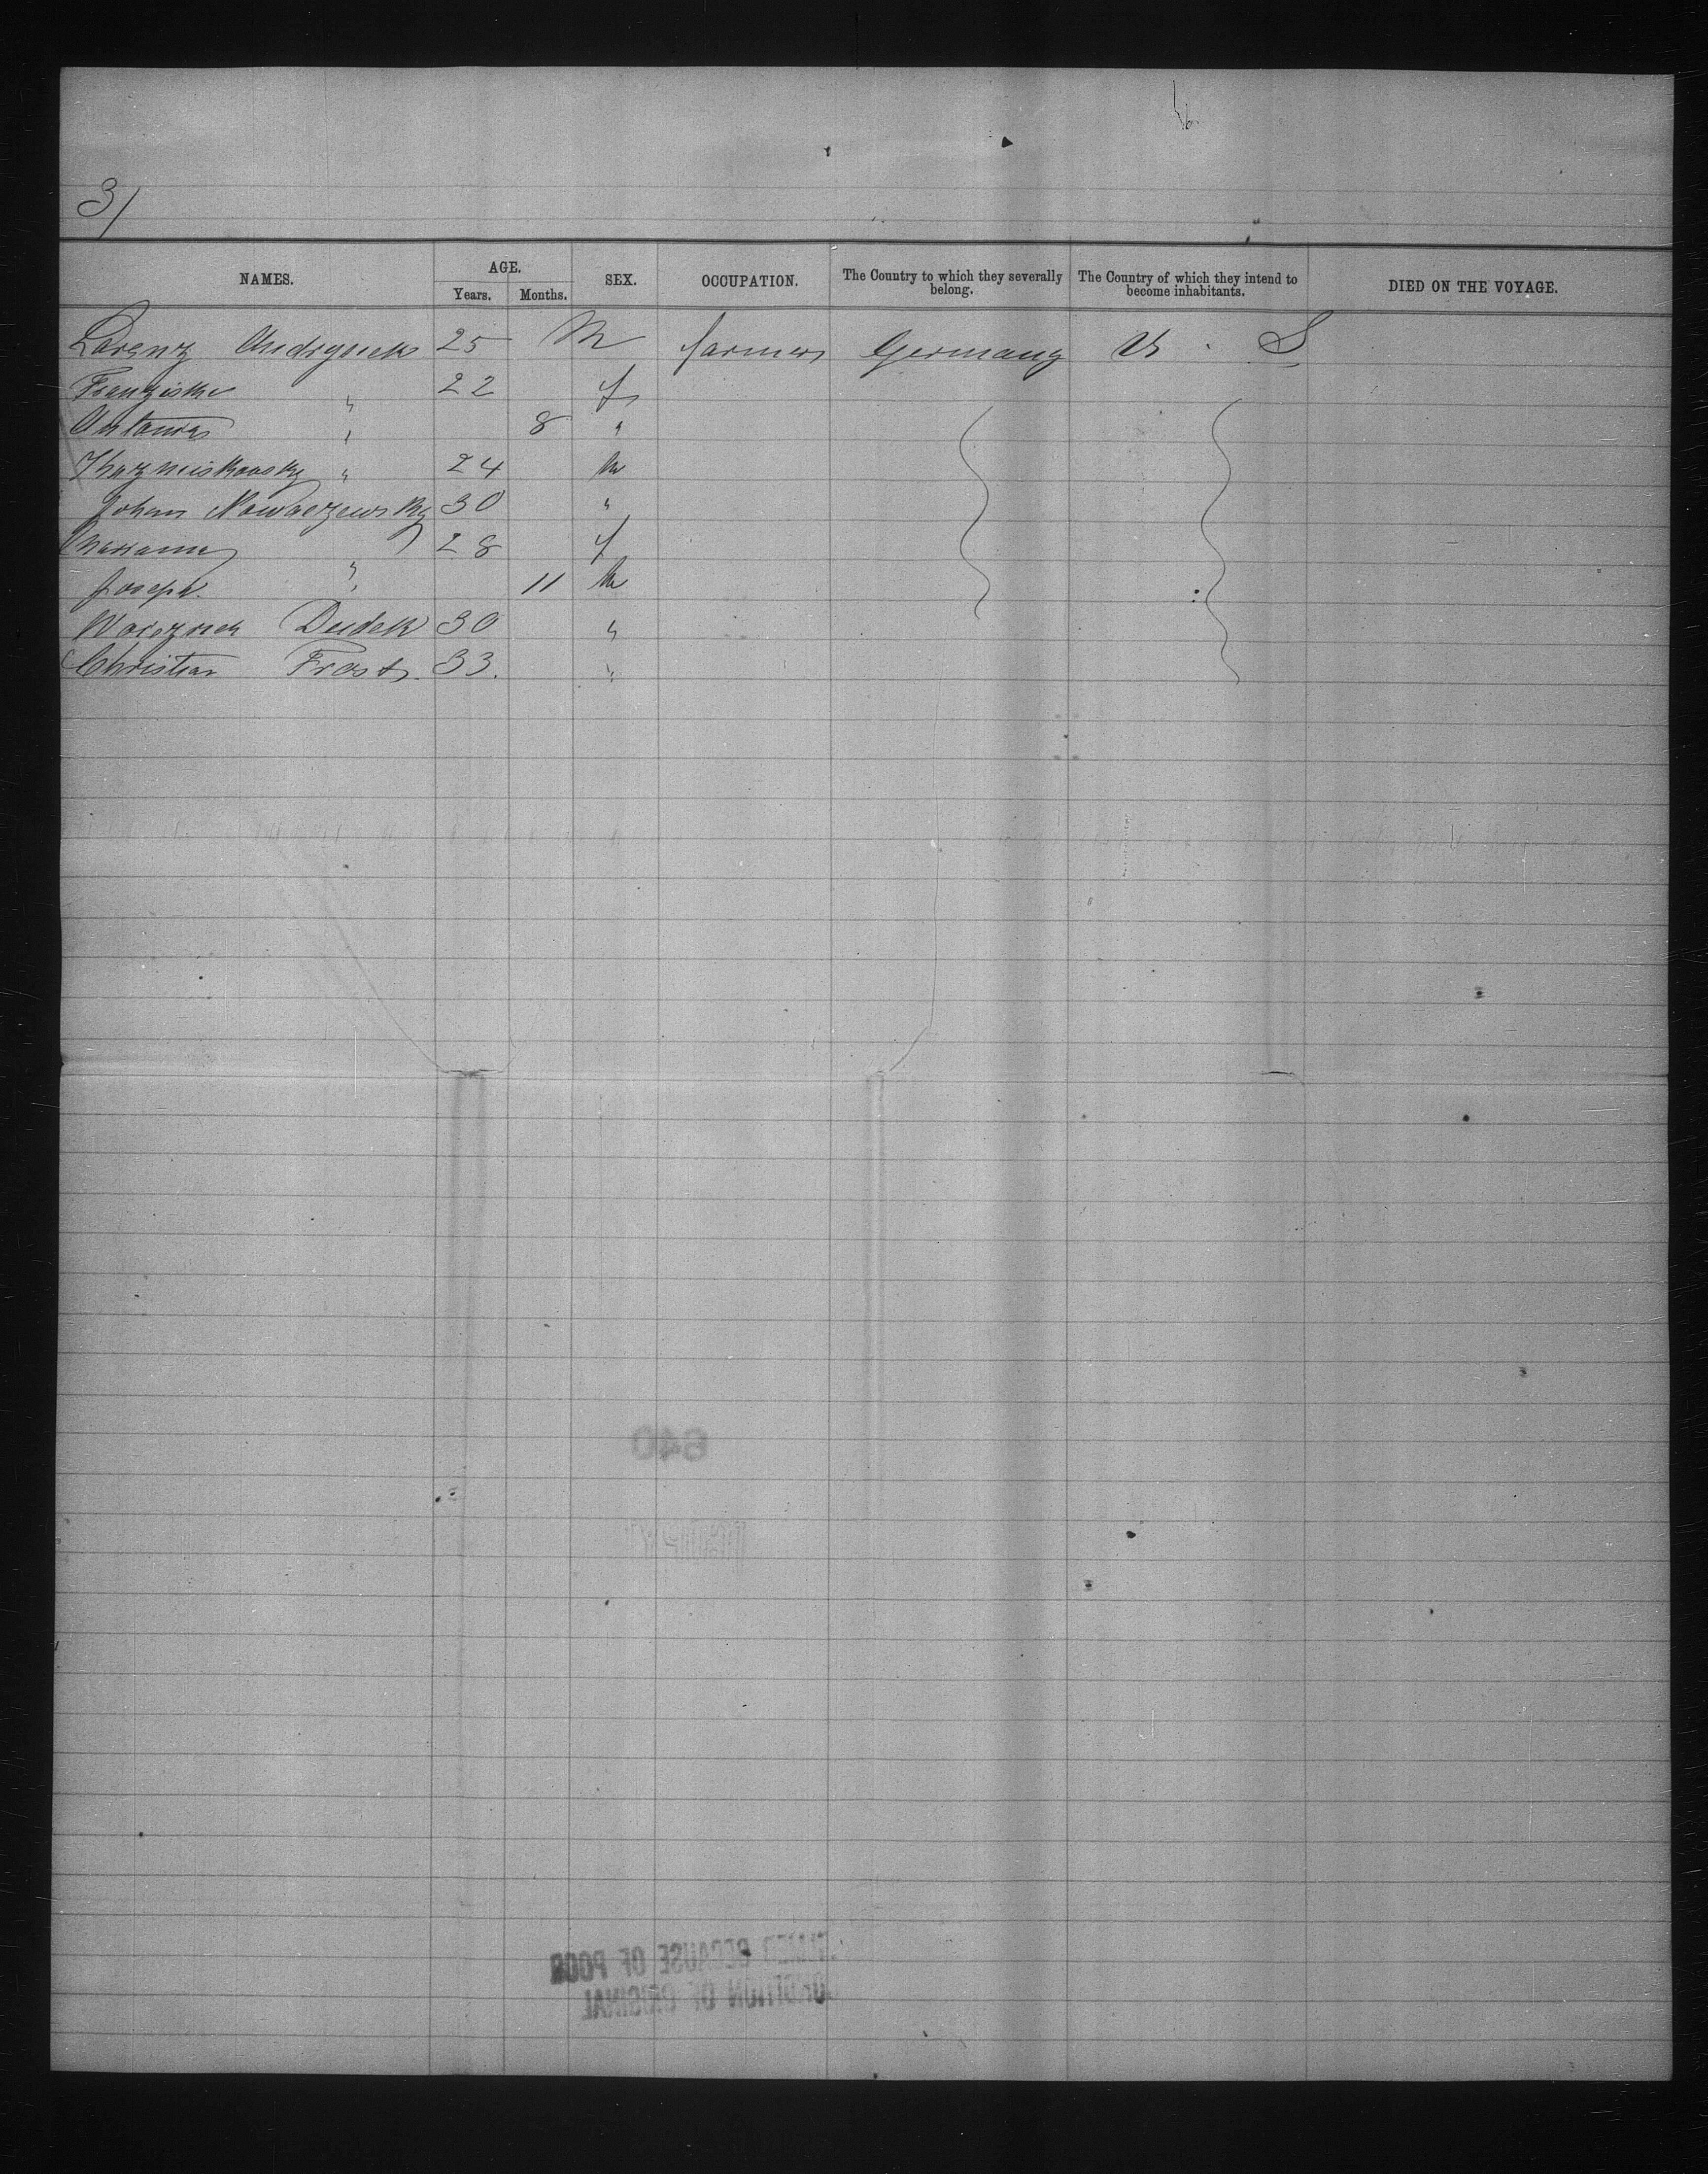 3/
NAMES. AGE. SEX. OCCUPATION. The Country to which they severally belong. The Country of which they intend to become inhabitants. DIED ON THE VOYAGE.
Years. Months.
Lorenz 25 M farmer Germany U. S
Franziska " 22 f
Antonia " 8 "
" 24 M
Johan 30 "
Marianna " 28 f
Joseph. " 11 M
Dudek 30 "
Christian Frost. 33. "
640
BECAUSE OF POOR
CONDITION OF ORIGINAL